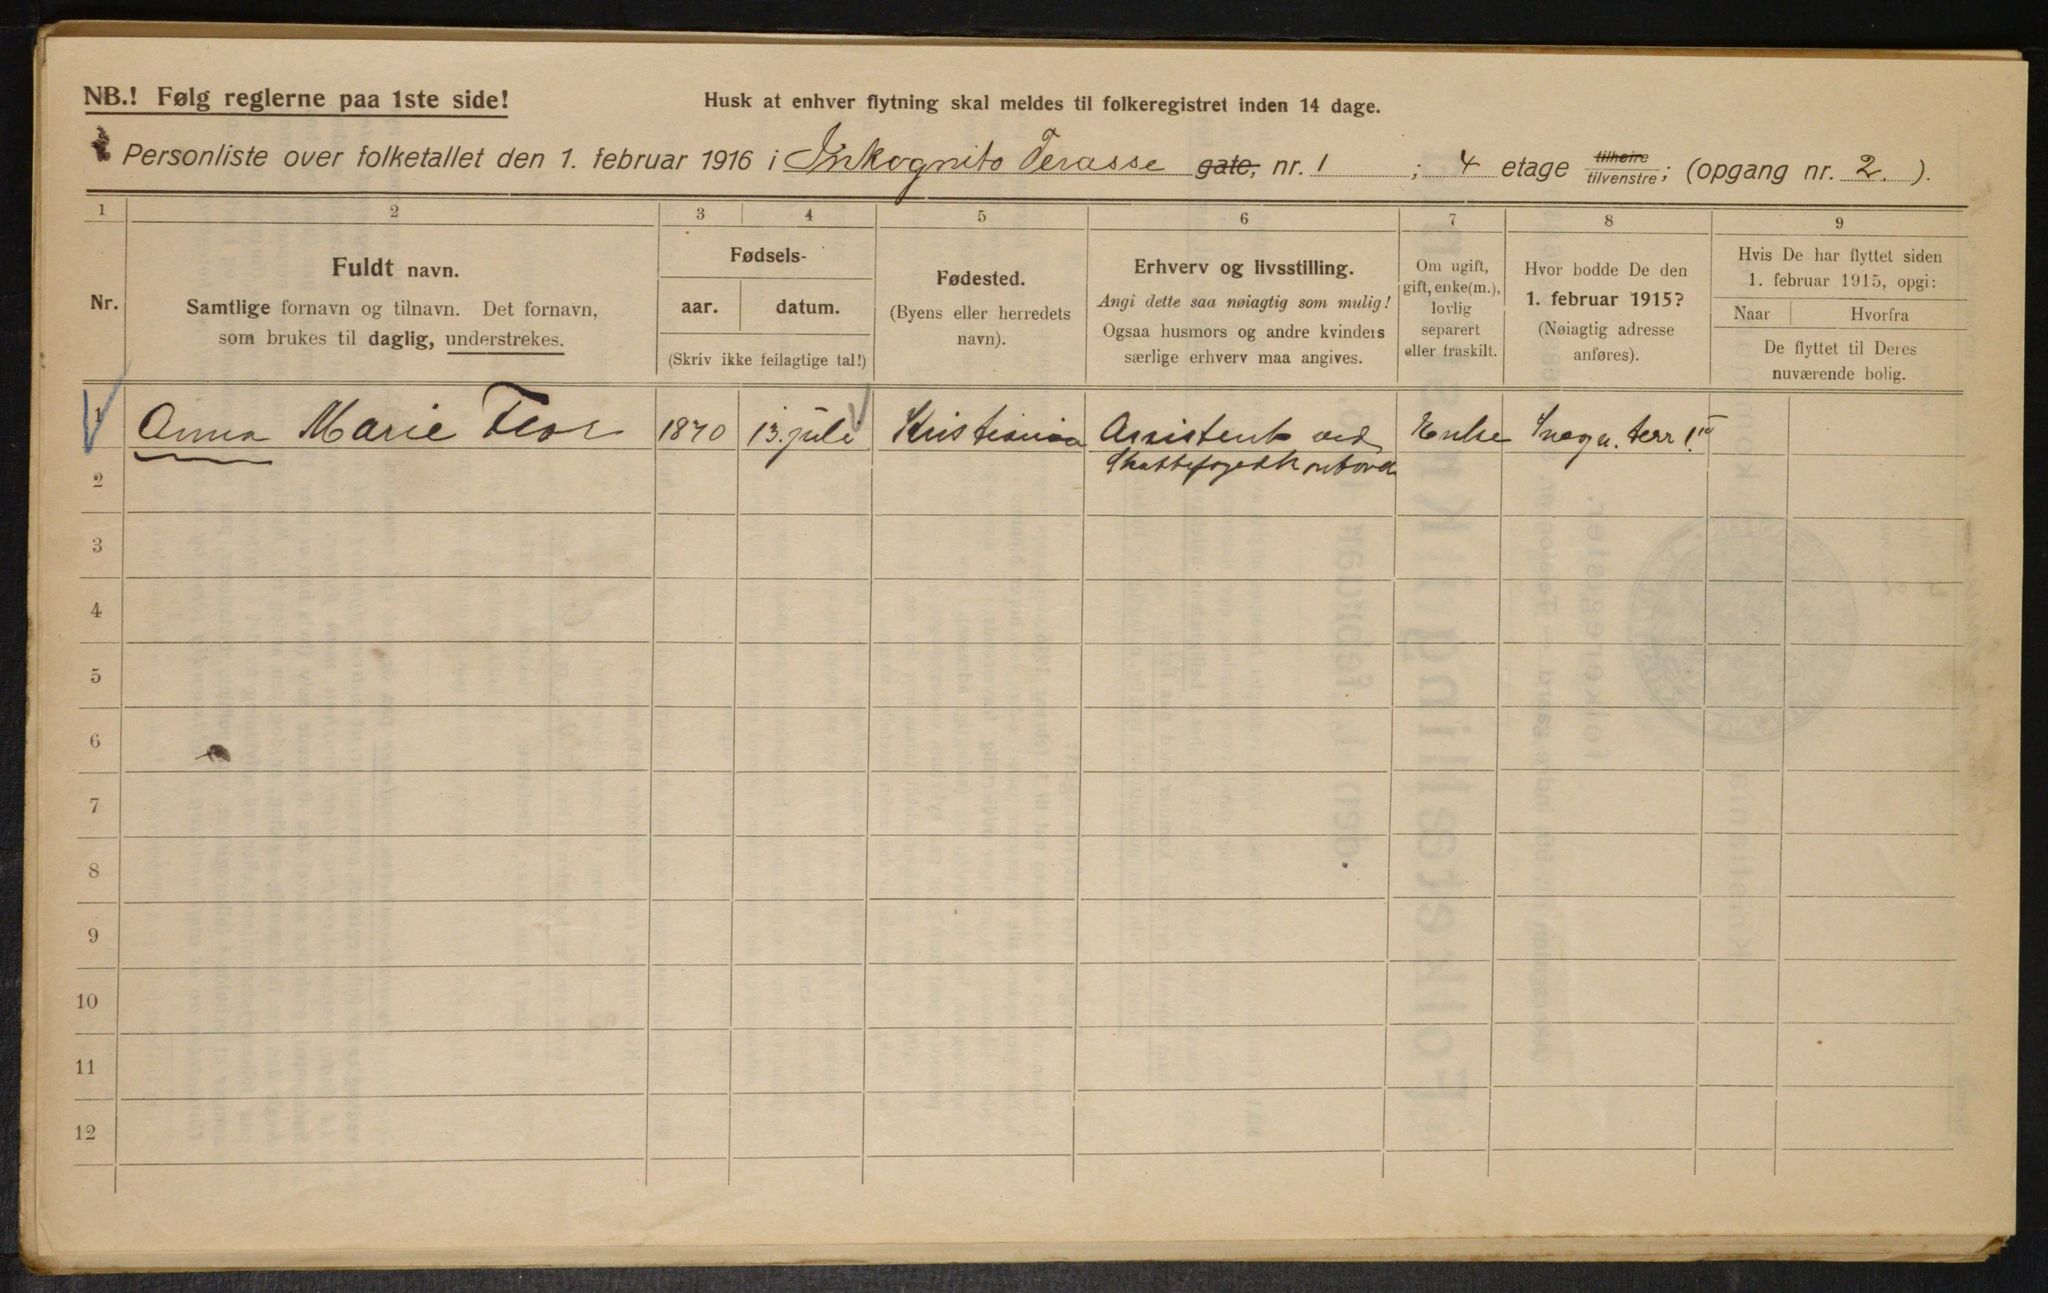 NB.! Følg reglerne paa 1ste side!
Husk at enhver flytning skal meldes til folkeregistret inden 14 dage.
Personliste over folketallet den 1. februar 1916 i Inkognito Terasse gate, nr. 1 ; 4 etage tilhøire tilvenstre; (opgang nr. 2.).
1 2 3 4 5 6 7 8 9
Nr.
Fuldt navn.
Samtlige fornavn og tilnavn. Det fornavn,
som brukes til daglig, understrekes.
Fødsels-
aar. datum.
(Skriv ikke feilagtige tal!)
Fødested.
(Byens eller herredets
navn).
Erhverv og livsstilling.
Angi dette saa nøiagtig som mulig!
Ogsaa husmors og andre kvinders
særlige erhverv maa angives.
Om ugift,
gift, enke(m.),
lovlig
separert
eller fraskilt.
Hvor bodde De den
1. februar 1915?
(Nøiagtig adresse
anføres).
Hvis De har flyttet siden
1. februar 1915, opgi:
Naar Hvorfra
De flyttet til Deres
nuværende bolig.
1 Anna Marie Flor 1870 13. juli Kristiania Assistent ved Enke Incogn. terr 1
Skattefogedkontoret
2
3
4
5
6
7
8
9
10
11
12